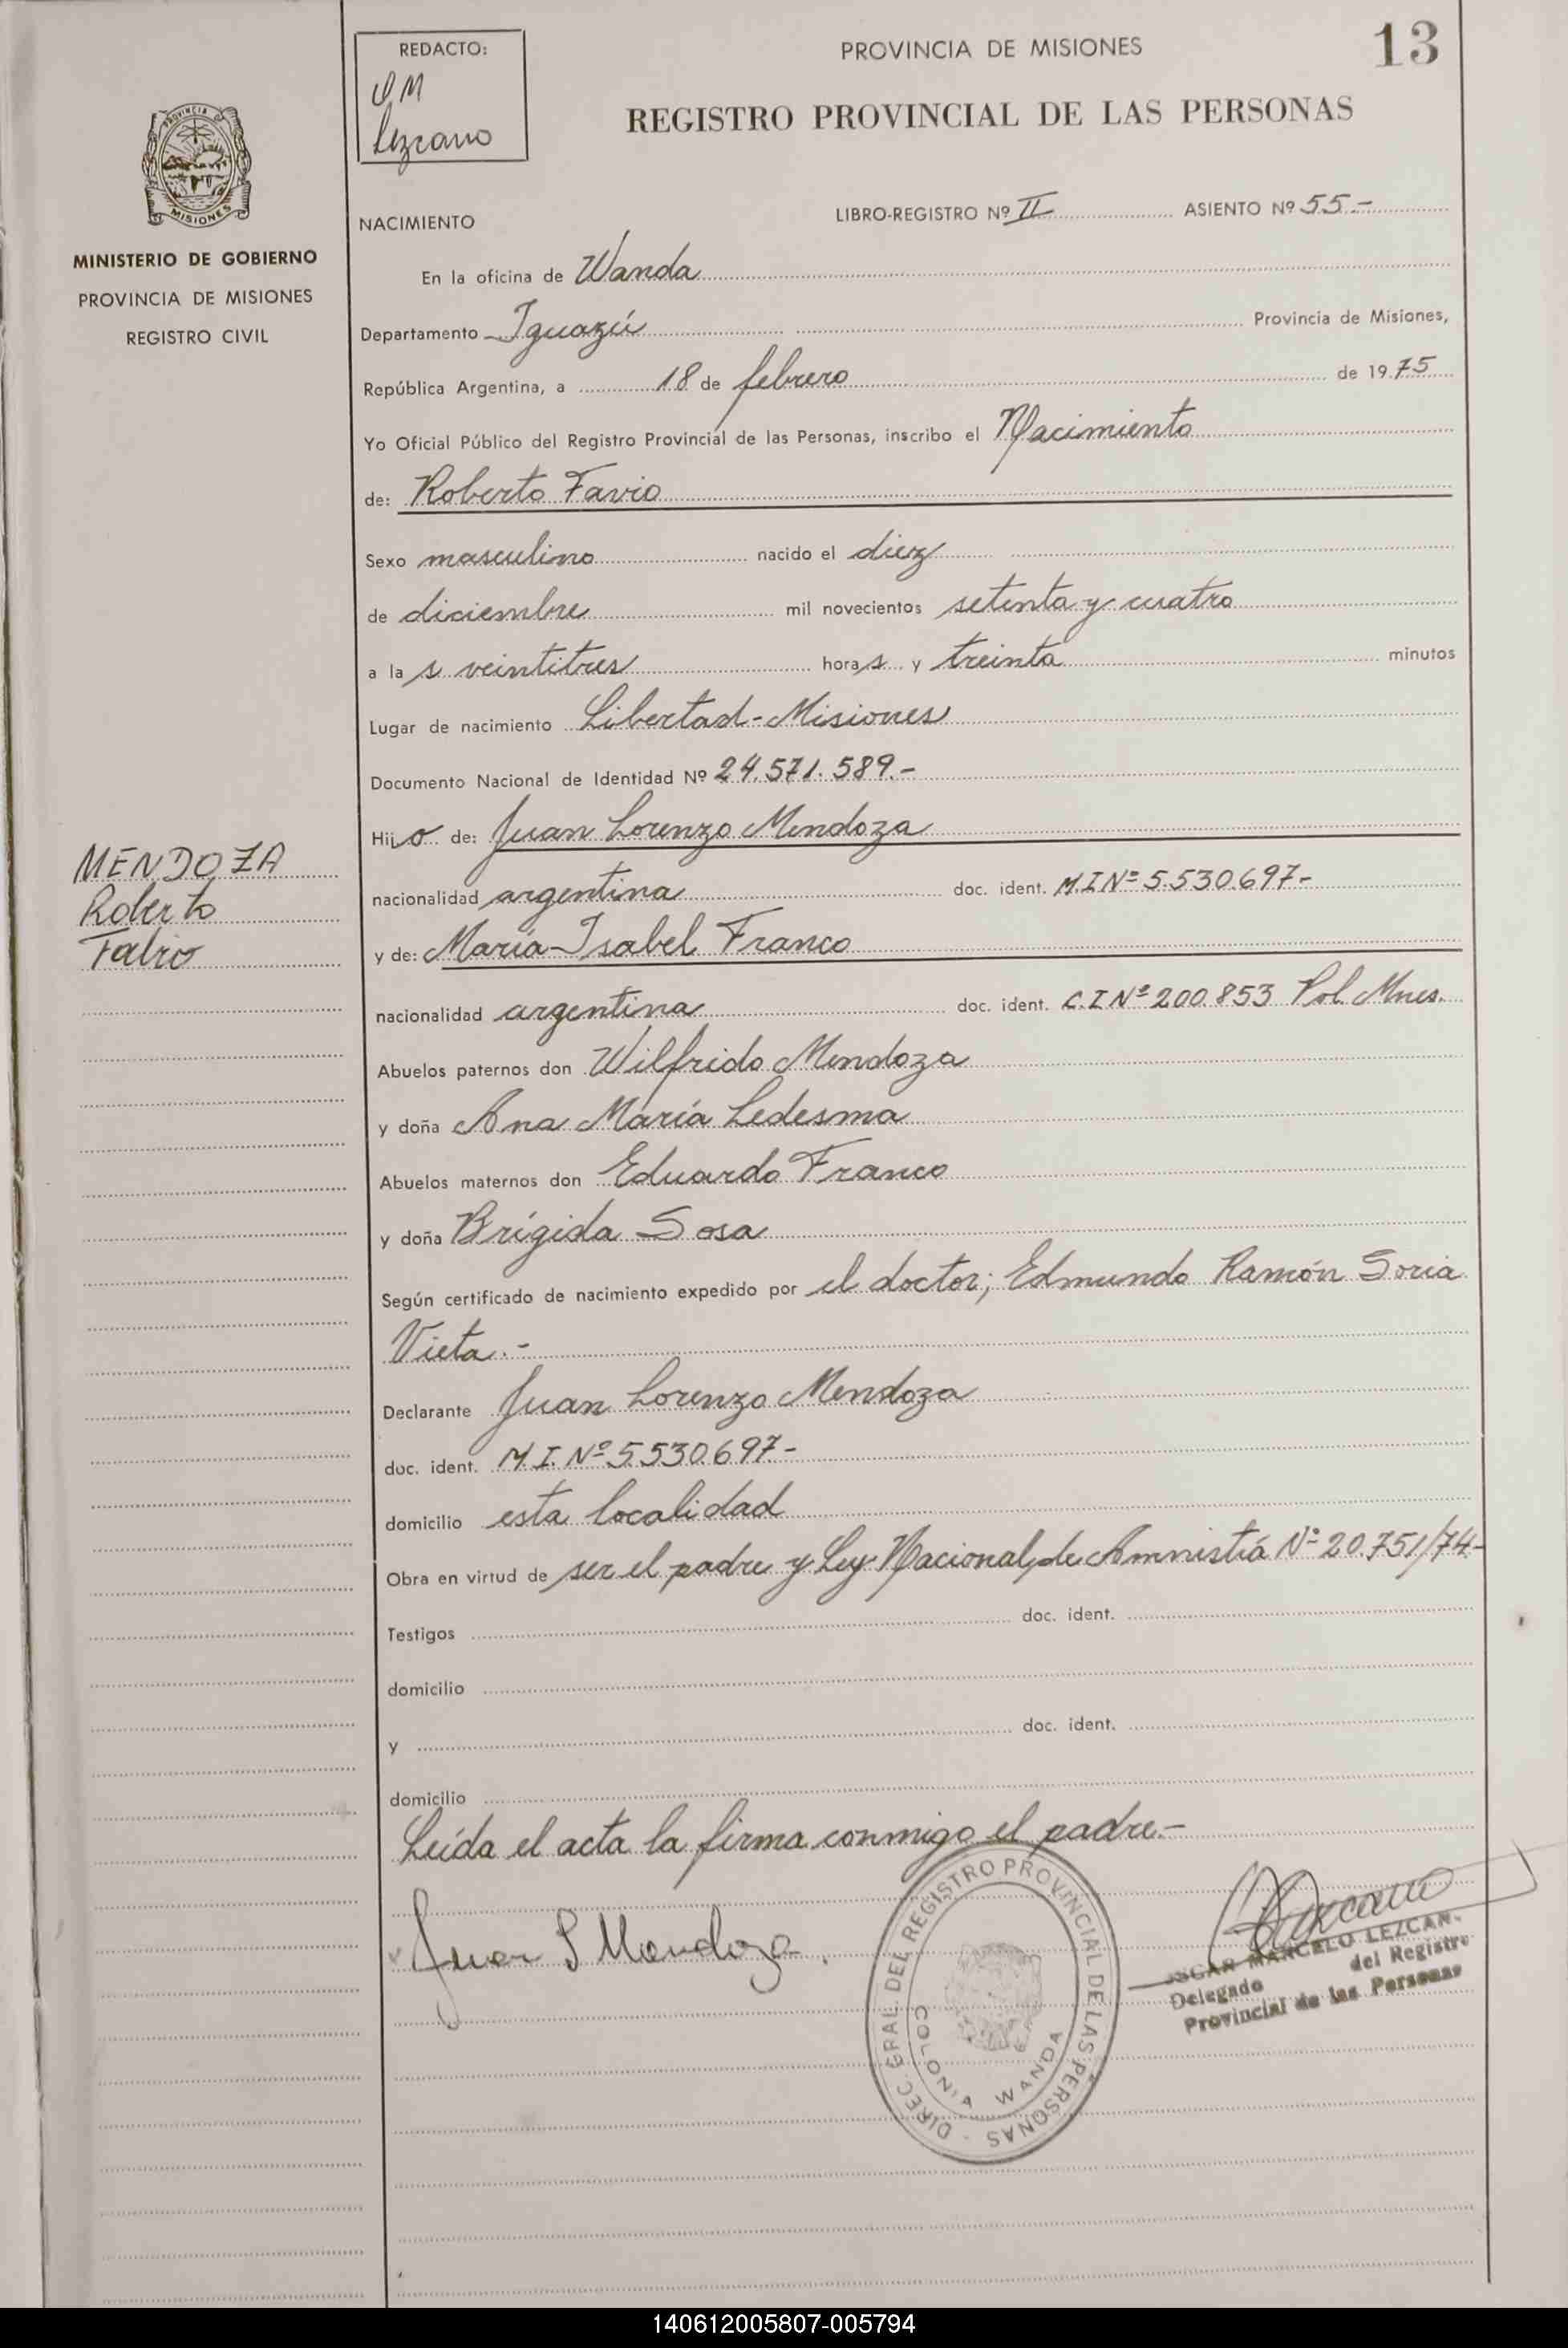 13
REDACTO:
OM
Lezcano
PROVINCIA DE MISIONES
REGISTRO PROVINCIAL DE LAS PERSONAS
PROVINCIA
MISIONES
MINISTERIO DE GOBIERNO
PROVINCIA DE MISIONES
REGISTRO CIVIL
NACIMIENTO
LIBRO-REGISTRO Nº II ASIENTO Nº 55.-
En la oficina de Wanda
Departamento Iguazú Provincia de Misiones,
República Argentina, a 18 de febrero de 1975
Yo Oficial Público del Registro Provincial de las Personas, inscribo el Nacimiento
de: Roberto Favio
Sexo masculino nacido el diez
de diciembre mil novecientos setenta y cuatro
a la s veintitres hora s y treinta minutos
Lugar de nacimiento Libertad-Misiones
Documento Nacional de Identidad Nº 24.571.589.-
Hijo de: Juan Lorenzo Mendoza
MENDOZA
Roberto
Fabio
nacionalidad argentina doc. ident. M.I Nº 5.530.697-
y de: María Isabel Franco
nacionalidad argentina doc. ident. C.I Nº 200.853 Pol. Mnes.
Abuelos paternos don Wilfrido Mendoza
y doña Ana María Ledesma
Abuelos maternos don Eduardo Franco
y doña Brígida Sosa
Según certificado de nacimiento expedido por el doctor; Edmundo Ramón Soria
Vieta.-
Declarante Juan Lorenzo Mendoza
doc. ident. M.I. Nº 5.530.697-
domicilio esta localidad
Obra en virtud de ser el padre y Ley Nacional de Amnistiá Nº 20.751/74-
Testigos doc. ident.
domicilio
y doc. ident.
domicilio
Leída el acta la firma conmigo el padre.-
Juan L Mendoza.
DIREC. GRAL DEL REGISTRO PROVINCIAL DE LAS PERSONAS -
COLONIA WANDA
OSCAR MARCELO LEZCAN
Delegado del Registro
Provincial de las Personas
140612005807-005794